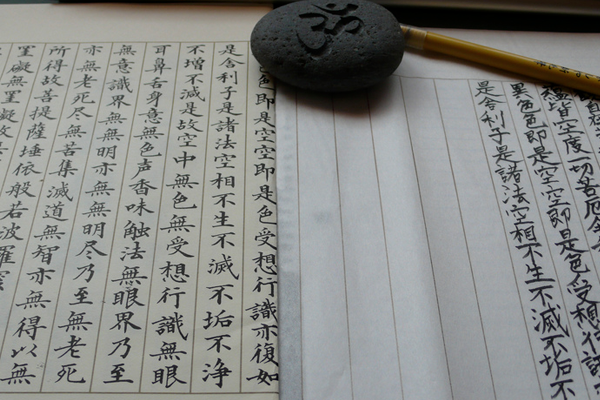 皆空度一切苦厄舍
異色色即是空空即是色受想行識
是舎利子是諸法空相不生不滅不垢不
色即是空空即是色受想行識亦復如
是舎利子是諸法空相不生不滅不垢不浄
不増不減是故空中無色無受想行識無眼
耳鼻舌身意無色声香味触法無眼界乃至
無意識界無無明亦無無明尽乃至無老死
亦無老死尽無苦集滅道無智亦無得以無
所得故菩提薩埵依般若波羅蜜
罣礙無罣礙故